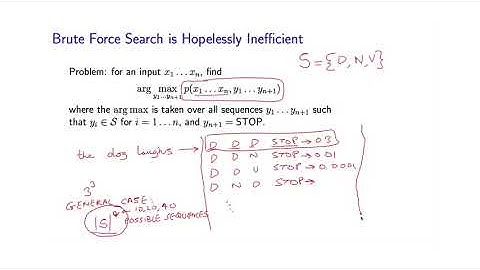 Brute Force Search is Hopelessly Inefficient
S = {D, N, V}
Problem: for an input x₁ … xₙ, find
arg max p(x₁ … xₙ, y₁ … yₙ₊₁)
y₁…yₙ₊₁
where the arg max is taken over all sequences y₁ … yₙ₊₁ such
that yᵢ ∈ S for i = 1 … n, and yₙ₊₁ = STOP.
the dog laughs → D D D STOP → 0.3
D D N STOP → 0.01
D D V STOP → 0.0001
D N D STOP →
⋮
3³
GENERAL CASE:
|S|ⁿ ← 10, 20, 40
POSSIBLE SEQUENCES